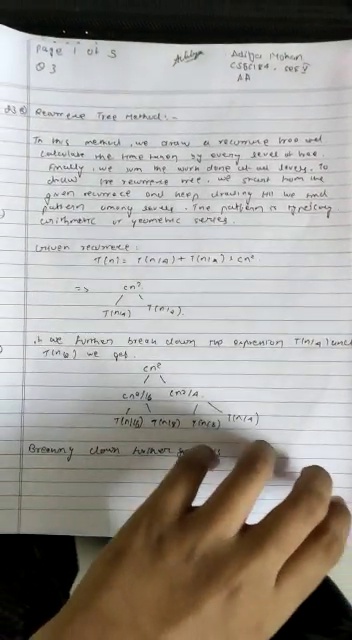 Page 1 of 5
Aditya Mohan
Q3
AA
Recurrence Tree Method:-
In this method, we draw a recurrence tree and
calculate the time taken by every level of tree.
Finally, we sum the work done at all levels. To
draw the recurrence tree, we start from the
given recurrence and keep drawing till we find
pattern among levels. The pattern is typically
arithmetic or geometric series.
Given recurrence:
T(n) = T(n/4) + T(n/2) + cn²
=> cn²
T(n/4) T(n/2)
If we further break down the expression T(n/4) and
we get
cn²
cn²/16 cn²/4
T(n/16) T(n/8) T(n/8) T(n/4)
Breaking down further